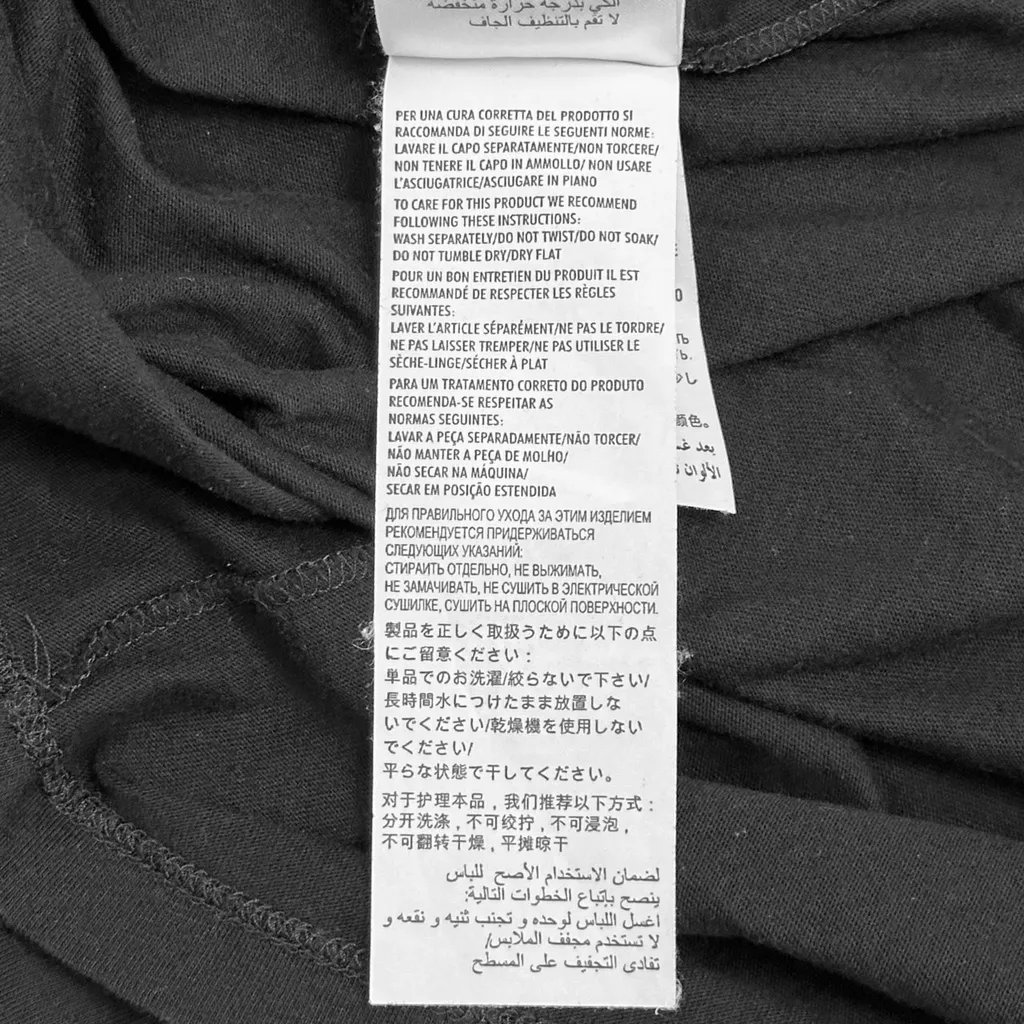 الكي بدرجة حرارة منخفضة
لا تقم بالتنظيف الجاف
PER UNA CURA CORRETTA DEL PRODOTTO SI
RACCOMANDA DI SEGUIRE LE SEGUENTI NORME:
LAVARE IL CAPO SEPARATAMENTE/NON TORCERE/
NON TENERE IL CAPO IN AMMOLLO/ NON USARE
L'ASCIUGATRICE/ASCIUGARE IN PIANO
TO CARE FOR THIS PRODUCT WE RECOMMEND
FOLLOWING THESE INSTRUCTIONS:
WASH SEPARATELY/DO NOT TWIST/DO NOT SOAK/
DO NOT TUMBLE DRY/DRY FLAT
POUR UN BON ENTRETIEN DU PRODUIT IL EST
RECOMMANDÉ DE RESPECTER LES RÈGLES
SUIVANTES:
LAVER L'ARTICLE SÉPARÉMENT/NE PAS LE TORDRE/
NE PAS LAISSER TREMPER/NE PAS UTILISER LE
SÈCHE-LINGE/SÉCHER À PLAT
PARA UM TRATAMENTO CORRETO DO PRODUTO
RECOMENDA-SE RESPEITAR AS
NORMAS SEGUINTES:
LAVAR A PEÇA SEPARADAMENTE/NÃO TORCER/
NÃO MANTER A PEÇA DE MOLHO/
NÃO SECAR NA MÁQUINA/
SECAR EM POSIÇÃO ESTENDIDA
ДЛЯ ПРАВИЛЬНОГО УХОДА ЗА ЭТИМ ИЗДЕЛИЕМ
РЕКОМЕНДУЕТСЯ ПРИДЕРЖИВАТЬСЯ
СЛЕДУЮЩИХ УКАЗАНИЙ:
СТИРАИТЬ ОТДЕЛЬНО, НЕ ВЫЖИМАТЬ,
НЕ ЗАМАЧИВАТЬ, НЕ СУШИТЬ В ЭЛЕКТРИЧЕСКОЙ
СУШИЛКЕ, СУШИТЬ НА ПЛОСКОЙ ПОВЕРХНОСТИ.
製品を正しく取扱うために以下の点
にご留意ください:
単品でのお洗濯/絞らないで下さい/
長時間水につけたまま放置しな
いでください/乾燥機を使用しない
でください/
平らな状態で干してください。
对于护理本品,我们推荐以下方式:
分开洗涤,不可绞拧,不可浸泡,
不可翻转干燥,平摊晾干
لضمان الاستخدام الأصح للباس
ينصح بإتباع الخطوات التالية:
اغسل اللباس لوحده و تجنب ثنيه و نقعه و
لا تستخدم مجفف الملابس/
تفادى التجفيف على المسطح
颜色。
بعد
الألوان